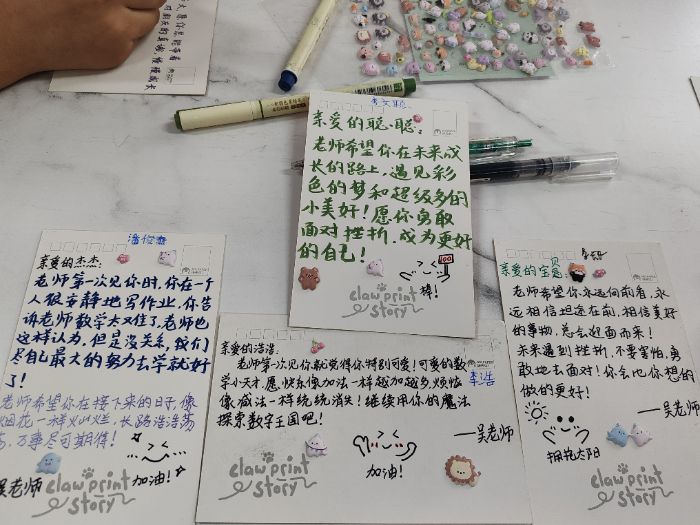 慢慢成大
亲爱的聪聪：
老师希望你在未来成
长的路上，遇见彩
色的梦和超级多的
小美好！愿你勇敢
面对挫折，成为更好
的自己！
100
棒！
claw print
story
亲爱的杰杰：
老师第一次见你时，你在一个
人很安静地写作业，你告
诉老师数学太难了，老师也
这样认为，但是没关系，我们
尽自己最大的努力去学就好
了！
老师希望你在接下来的日子，像
烟花一样灿烂，长路浩浩荡
荡，万事尽可期待！
吴老师
加油！
claw print
story
亲爱的浩浩：
李浩
老师第一次见你就觉得你特别可爱！可爱的数
学小天才，愿快乐像加法一样越加越多，烦恼
像减法一样统统消失！继续用你的魔法
探索数字王国吧！
——吴老师
加油！
claw print
story
亲爱的宝贝
老师希望你永远向前看，永
远相信坦途在前，相信美好
的事物，总会迎面而来！
未来遇到挫折，不要害怕，勇
敢地去面对！你会比你想的
做的更好！
——吴老师
拥抱太阳
claw print
story